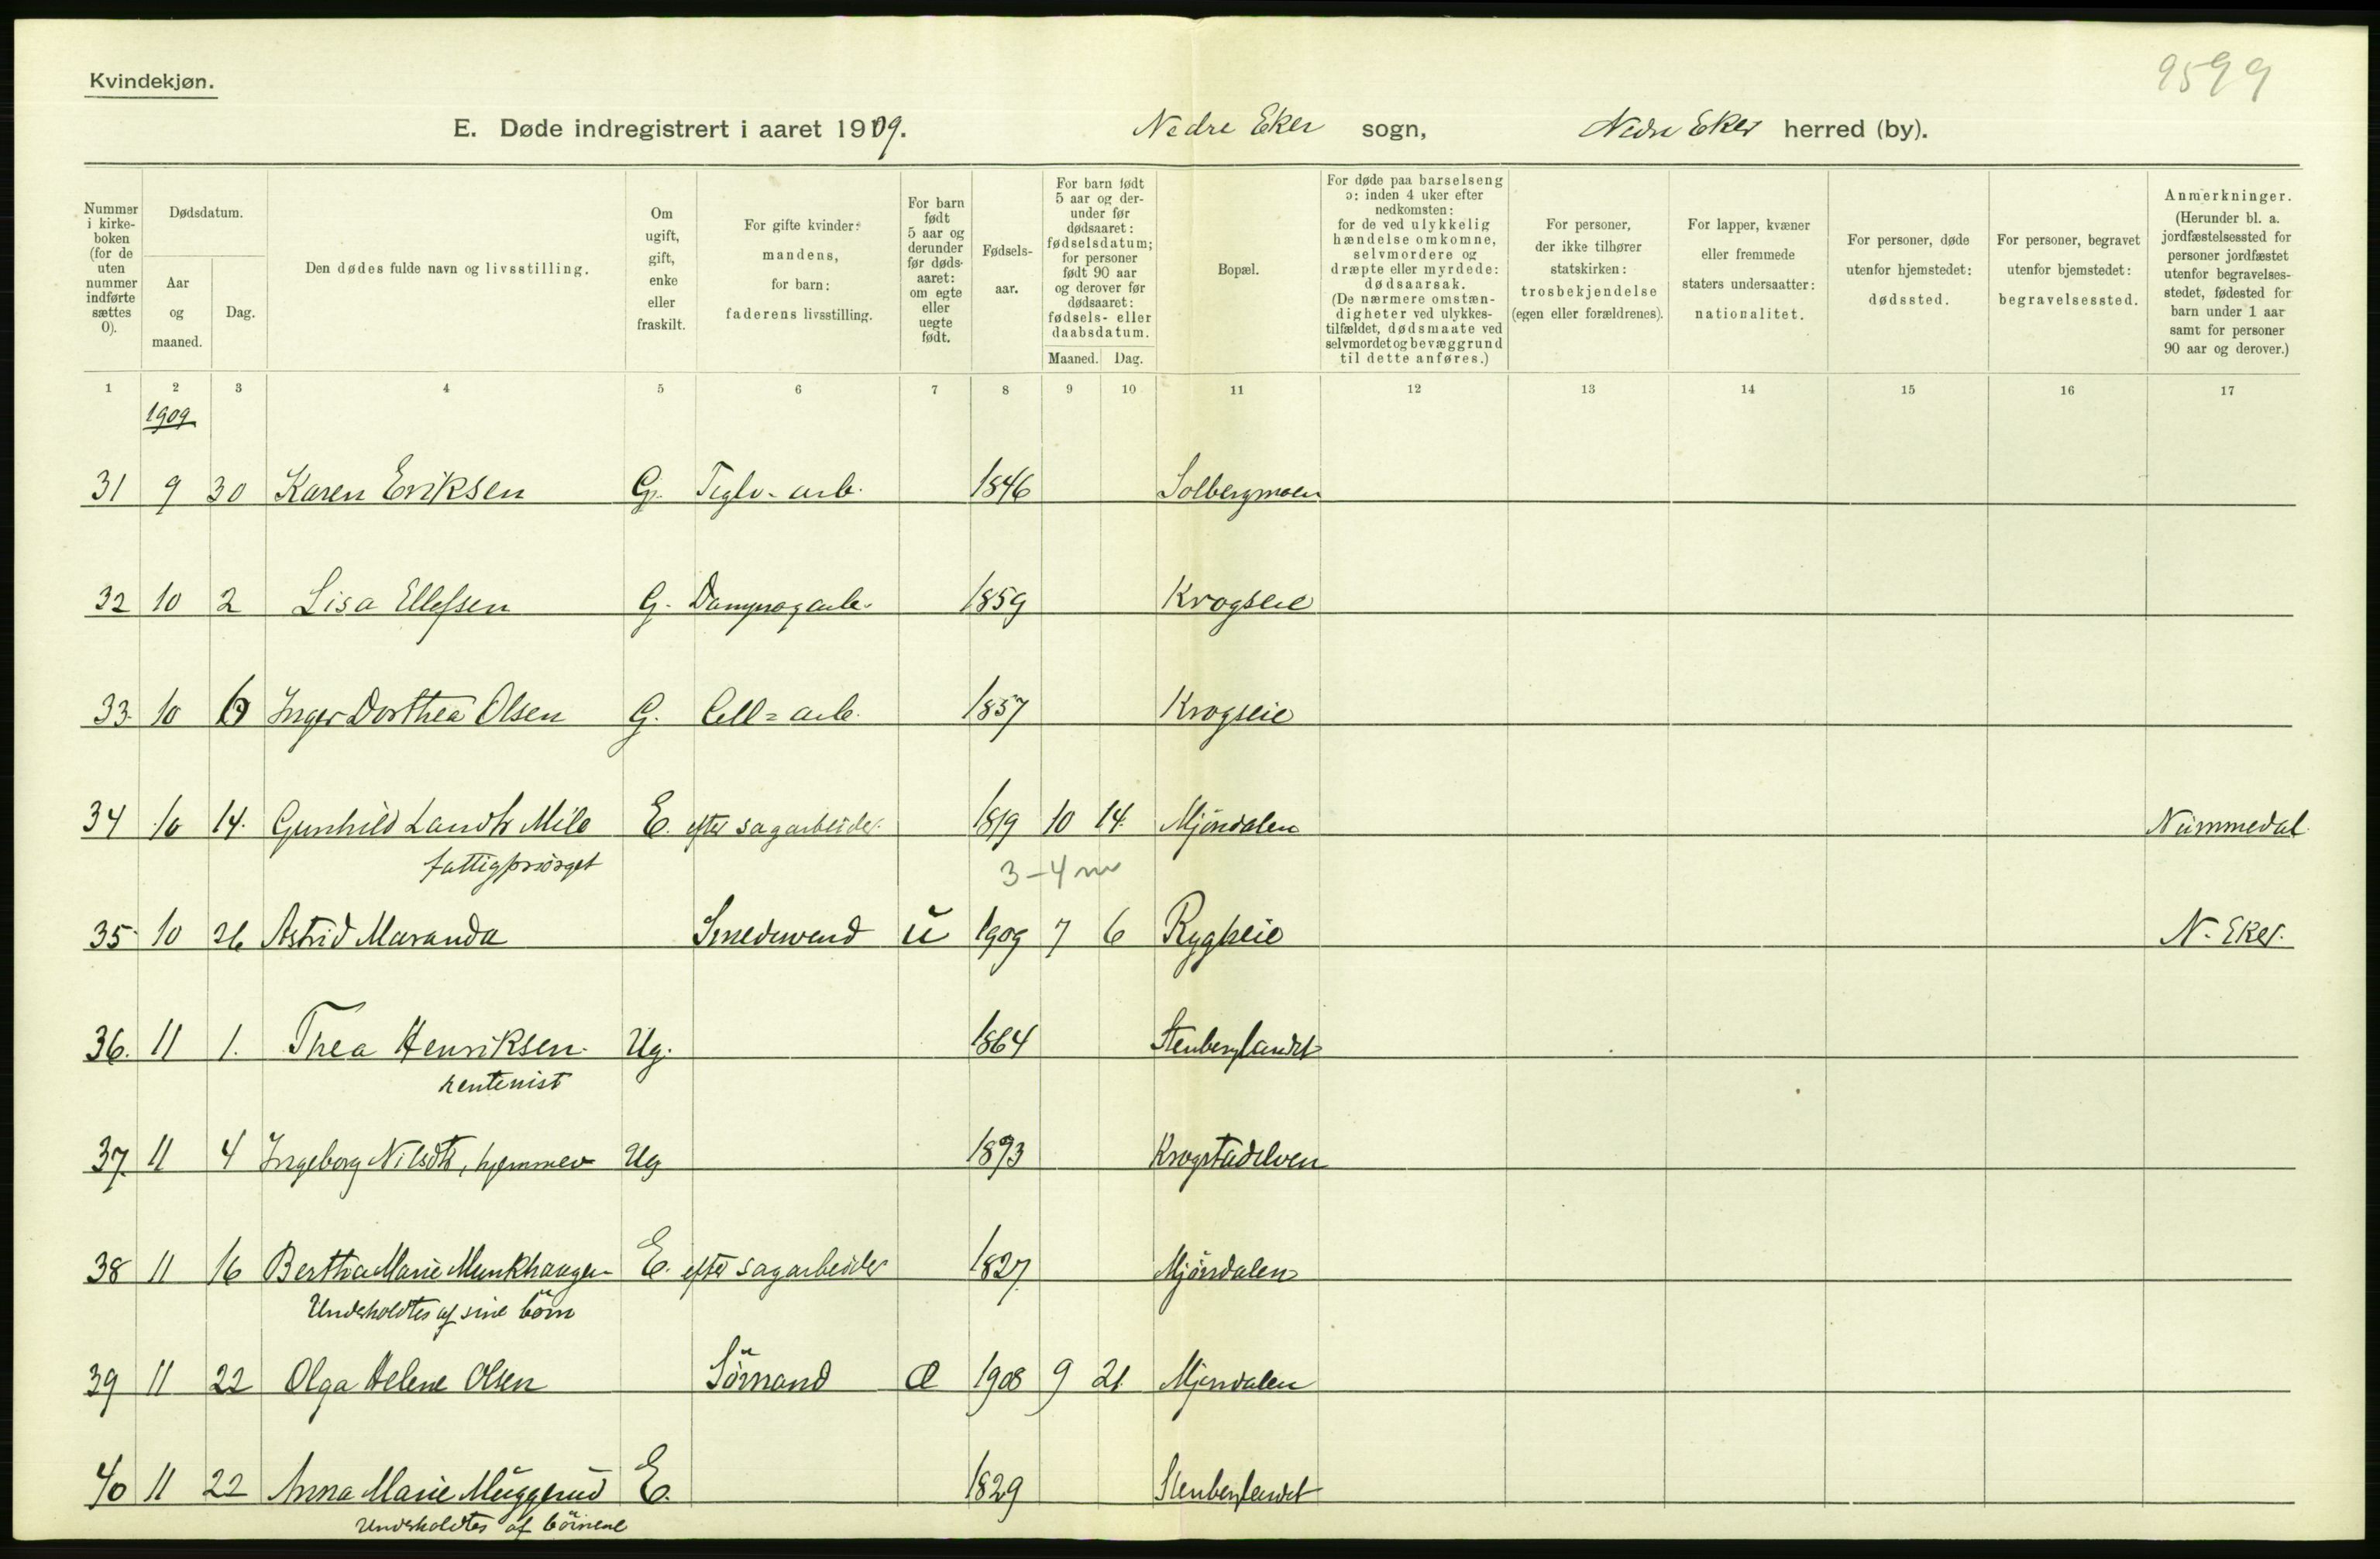 9599
Kvindekjøn.
E. Døde indregistrert i aaret 1909. Nedre Eker sogn, Nedre Eker herred (by).
Nummer i kirke-boken (for de uten nummer indførte sættes 0).
Dødsdatum.
Aar og maaned.
Dag.
Den dødes fulde navn og livsstilling.
Om ugift, gift, enke eller fraskilt.
For gifte kvinder: mandens, for barn: faderens livsstilling.
For barn født 5 aar og derunder før døds-aaret: om egte eller uegte født.
Fødsels-aar.
For barn født 5 aar og der-under før dødsaaret: fødselsdatum; for personer født 90 aar og derover før dødsaaret: fødsels- eller daabsdatum.
Maaned. Dag.
Bopæl.
For døde paa barselseng ɔ: inden 4 uker efter nedkomsten: for de ved ulykkelig hændelse omkomne, selvmordere og dræpte eller myrdede: dødsaarsak. (De nærmere omstæn-digheter ved ulykkes-tilfældet, dødsmaate ved selvmordet og bevæggrund til dette anføres.)
For personer, der ikke tilhører statskirken: trosbekjendelse (egen eller forældrenes).
For lapper, kvæner eller fremmede staters undersaatter: nationalitet.
For personer, døde utenfor hjemstedet: dødssted.
For personer, begravet utenfor hjemstedet: begravelsessted.
Anmerkninger. (Herunder bl. a. jordfæstelsessted for personer jordfæstet utenfor begravelses-stedet, fødested for barn under 1 aar samt for personer 90 aar og derover.)
1 2 3 4 5 6 7 8 9 10 11 12 13 14 15 16 17
1909
31 9 30 Karen Eriksen G. Teglv. arb. 1846 Solbergmoen
32 10 2 Lisa Ellefsen G. Dampsagarb. 1859 Krogseie
33 10 6 Inger Dorthea Olsen G. Cell= arb. 1857 Krogseie
34 10 14. Gunhild Larsdtr Mile E. efter sagarbeider 1819 10 14 Mjöndalen Nummedal
fattigforsörget 3-4 m
35 10 26 Astrid Maranda Smedsvend u 1909 7 6 Rygheie N. Eker.
36. 11 1. Thea Henriksen Ug. 1864 Stenberglandet
rentenist
37. 11 4 Ingeborg Nilsdtr, hjemmev Ug 1893 Krogstadelven
38 11 16 Berthea Marie Munkhaugen E. efter sagarbeider 1827 Mjöndalen
Underholdtes af sine börn
39 11 22 Olga Helene Olsen Sömand Æ 1908 9 21. Mjöndalen
40 11 22 Anna Marie Muggerud E. 1829 Stenberglandet
Underholdtes af börnene